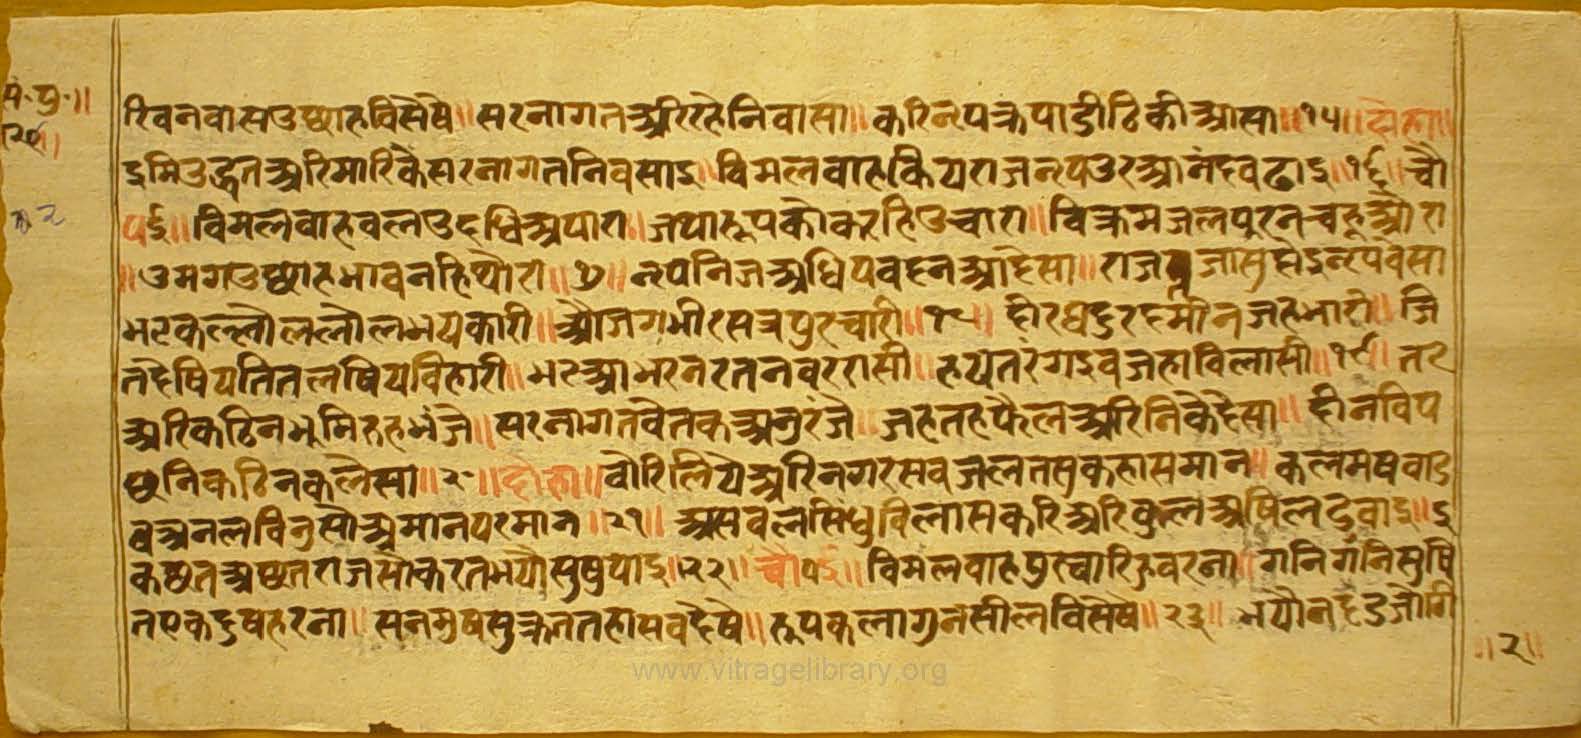 सं. पु.॥
रिवनवासउछाहविसेषै॥ सरनागतअरिरहैनिवासा॥ करिनृपकृपाडीठिकीआसा॥१५॥दोहा॥
इमिउद्धतअरिमारिकैसरनागतनिवसाइ॥विमलवाहकियराजनृपउरआनंदवढाइ॥१६॥चौ
पई॥विमलवाहवलउदधिअपारा॥जथारूपकौकरहिउचारा॥विक्रमजलपुरनचहूओरा
॥उमगउछाहभावनहिथोरा॥१७॥नृपनिजअधिपवदनआदेसा॥राज जासुहोइनृपवेसा
भटकल्लोललोलभयकारी॥ओजगभीरसत्रपुरचारी॥१८॥ दीरघदुरदमीनजहभारी॥जि
तदेषियतितलषियविहारी॥भटआभरनरतनवररासी॥हयतरंगइवजहाविलासी॥१९॥तट
अरिकठिनभुमिरुहभंजै॥सरनागतवेतकअनुरंजै॥जहतहफैलअरिनिकेदेसा॥दीनविप
छनिकठिनकलेसा॥२०॥दोहा॥वोरिलियेअरिनगरसवजलतसुकहासमान॥कलमषवाड
वअनलविनुसोअमानपरमान॥२१॥असवलसिंधुविलासकरिअरिकुलअषिलदुवाइ॥इ
कछतअछतराजसोकरतभयोसुषुपाइ॥२२॥चौपई॥विमलवाहपुरचारिहुवरना॥गनिगनिसुषि
तएकदुषहरना॥ सनमुषसुक्रततहासवदेषै॥रूपकलागुनसीलविसेषै॥२३॥भयौनदंडुजोगि
॥२॥
www.vitragelibrary.org